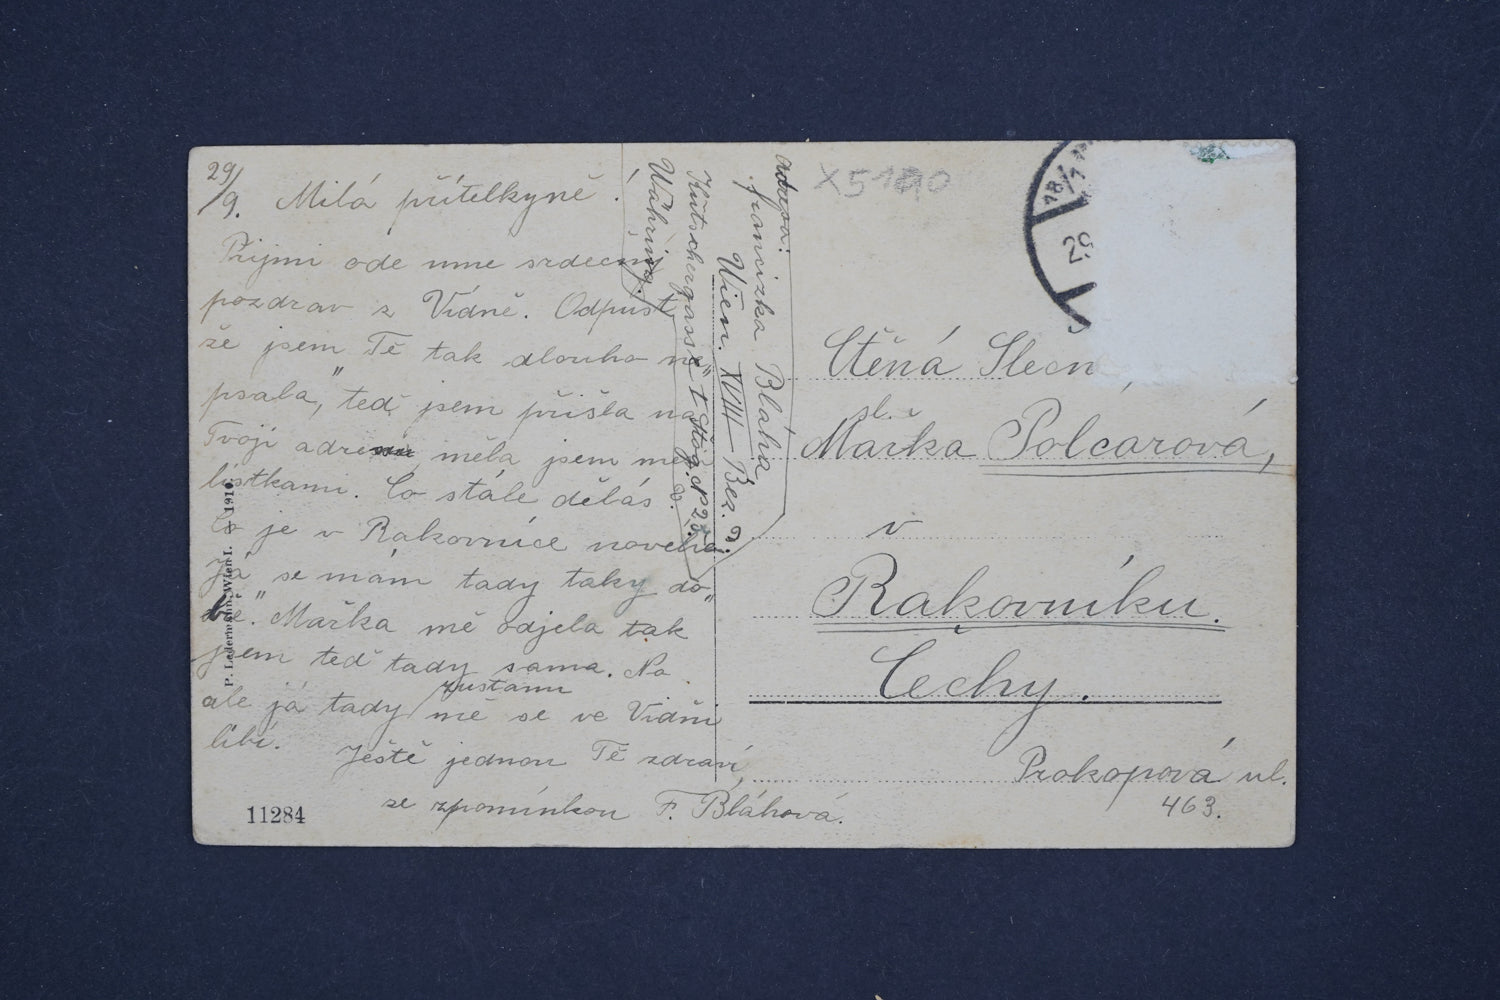 29/9.
Milá přítelkyně!
Přijmi ode mne srdečný
pozdrav z Vídně. Odpusť
že jsem Tě tak dlouho ne"
psala," teď jsem přišla na
Tvoji adre měla jsem mezi
lístkami. Co stále děláš.
Co je v Rakovnice nového.
Já se mám tady taky do"
bře." Mařka mě odjela tak
jsem teď tady sama. No
zustanu
ale já tady mě se ve Vídni
líbí.
Ještě jednou Tě zdraví,
se zpomínkou F. Bláhová.
11284
P. Ledermann, Wien I. 1910.
Adresa:
Franciszka Bláha
Wien. XVIII Bez. 9.
Kutschergasse 1 Stog. N 25.
Währing.
X5100
18/1
29
Ctěná Slečn
sl.
Mařka Polcarová,
v
Rakovníku.
Čechy.
Prokopová ul.
463.